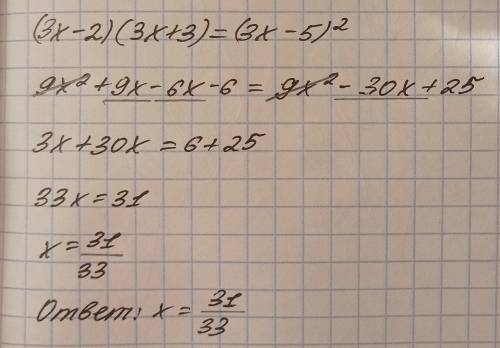 (3x-2)(3x+3)=(3x-5)²
9x²+9x-6x-6=9x²-30x+25
3x+30x=6+25
33x=31
x=31/33
Ответ: x=31/33